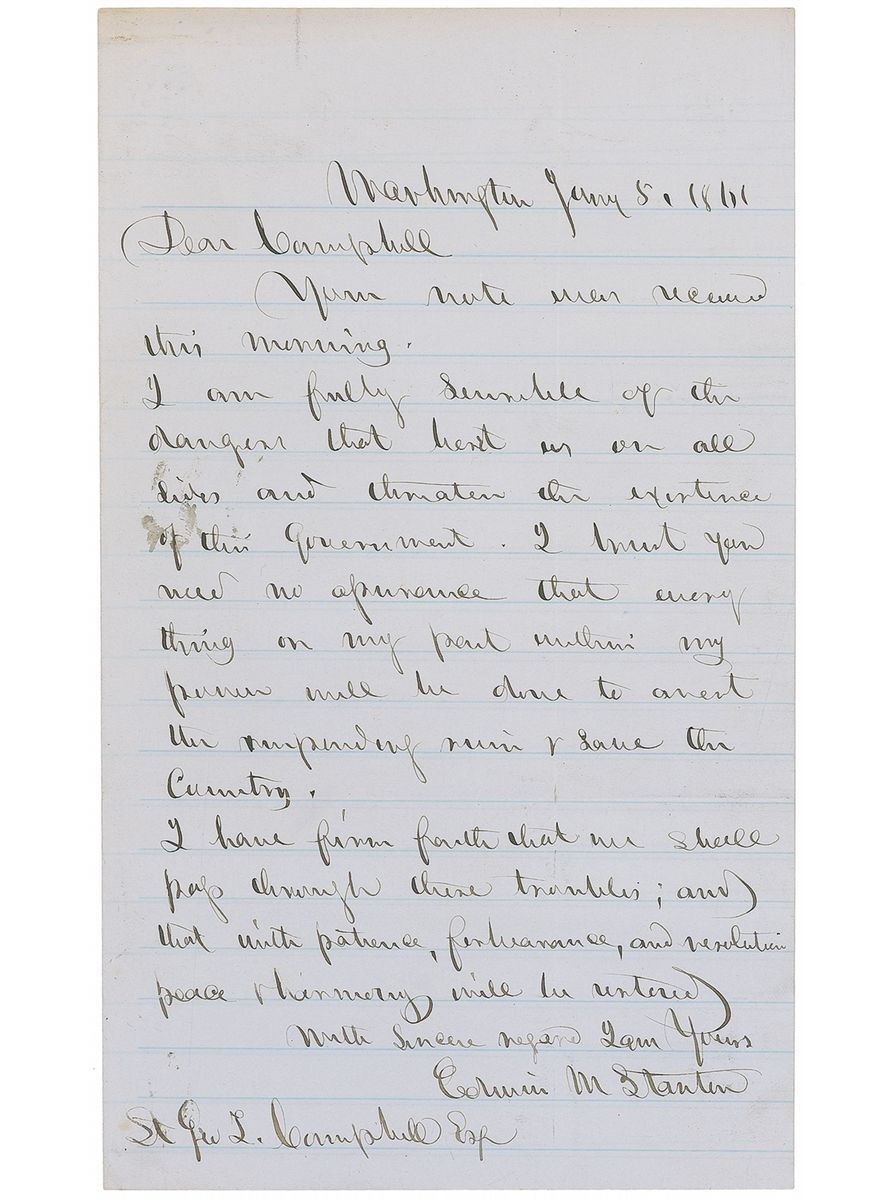 Washington Jany 5, 1861
Dear Campbell
Your note was received
this morning.
I am fully sensible of the
dangers that beset us on all
sides and threaten the existence
of this Government. I trust you
need no assurance that every
thing on my part within my
power will be done to avert
the impending ruin & save the
Country.
I have firm faith that we shall
pass through these troubles; and
that with patience, forbearance, and resolution
peace & harmony will be restored
With Sincere regard I am Yours
Edwin M Stanton
St Geo T. Campbell Esq